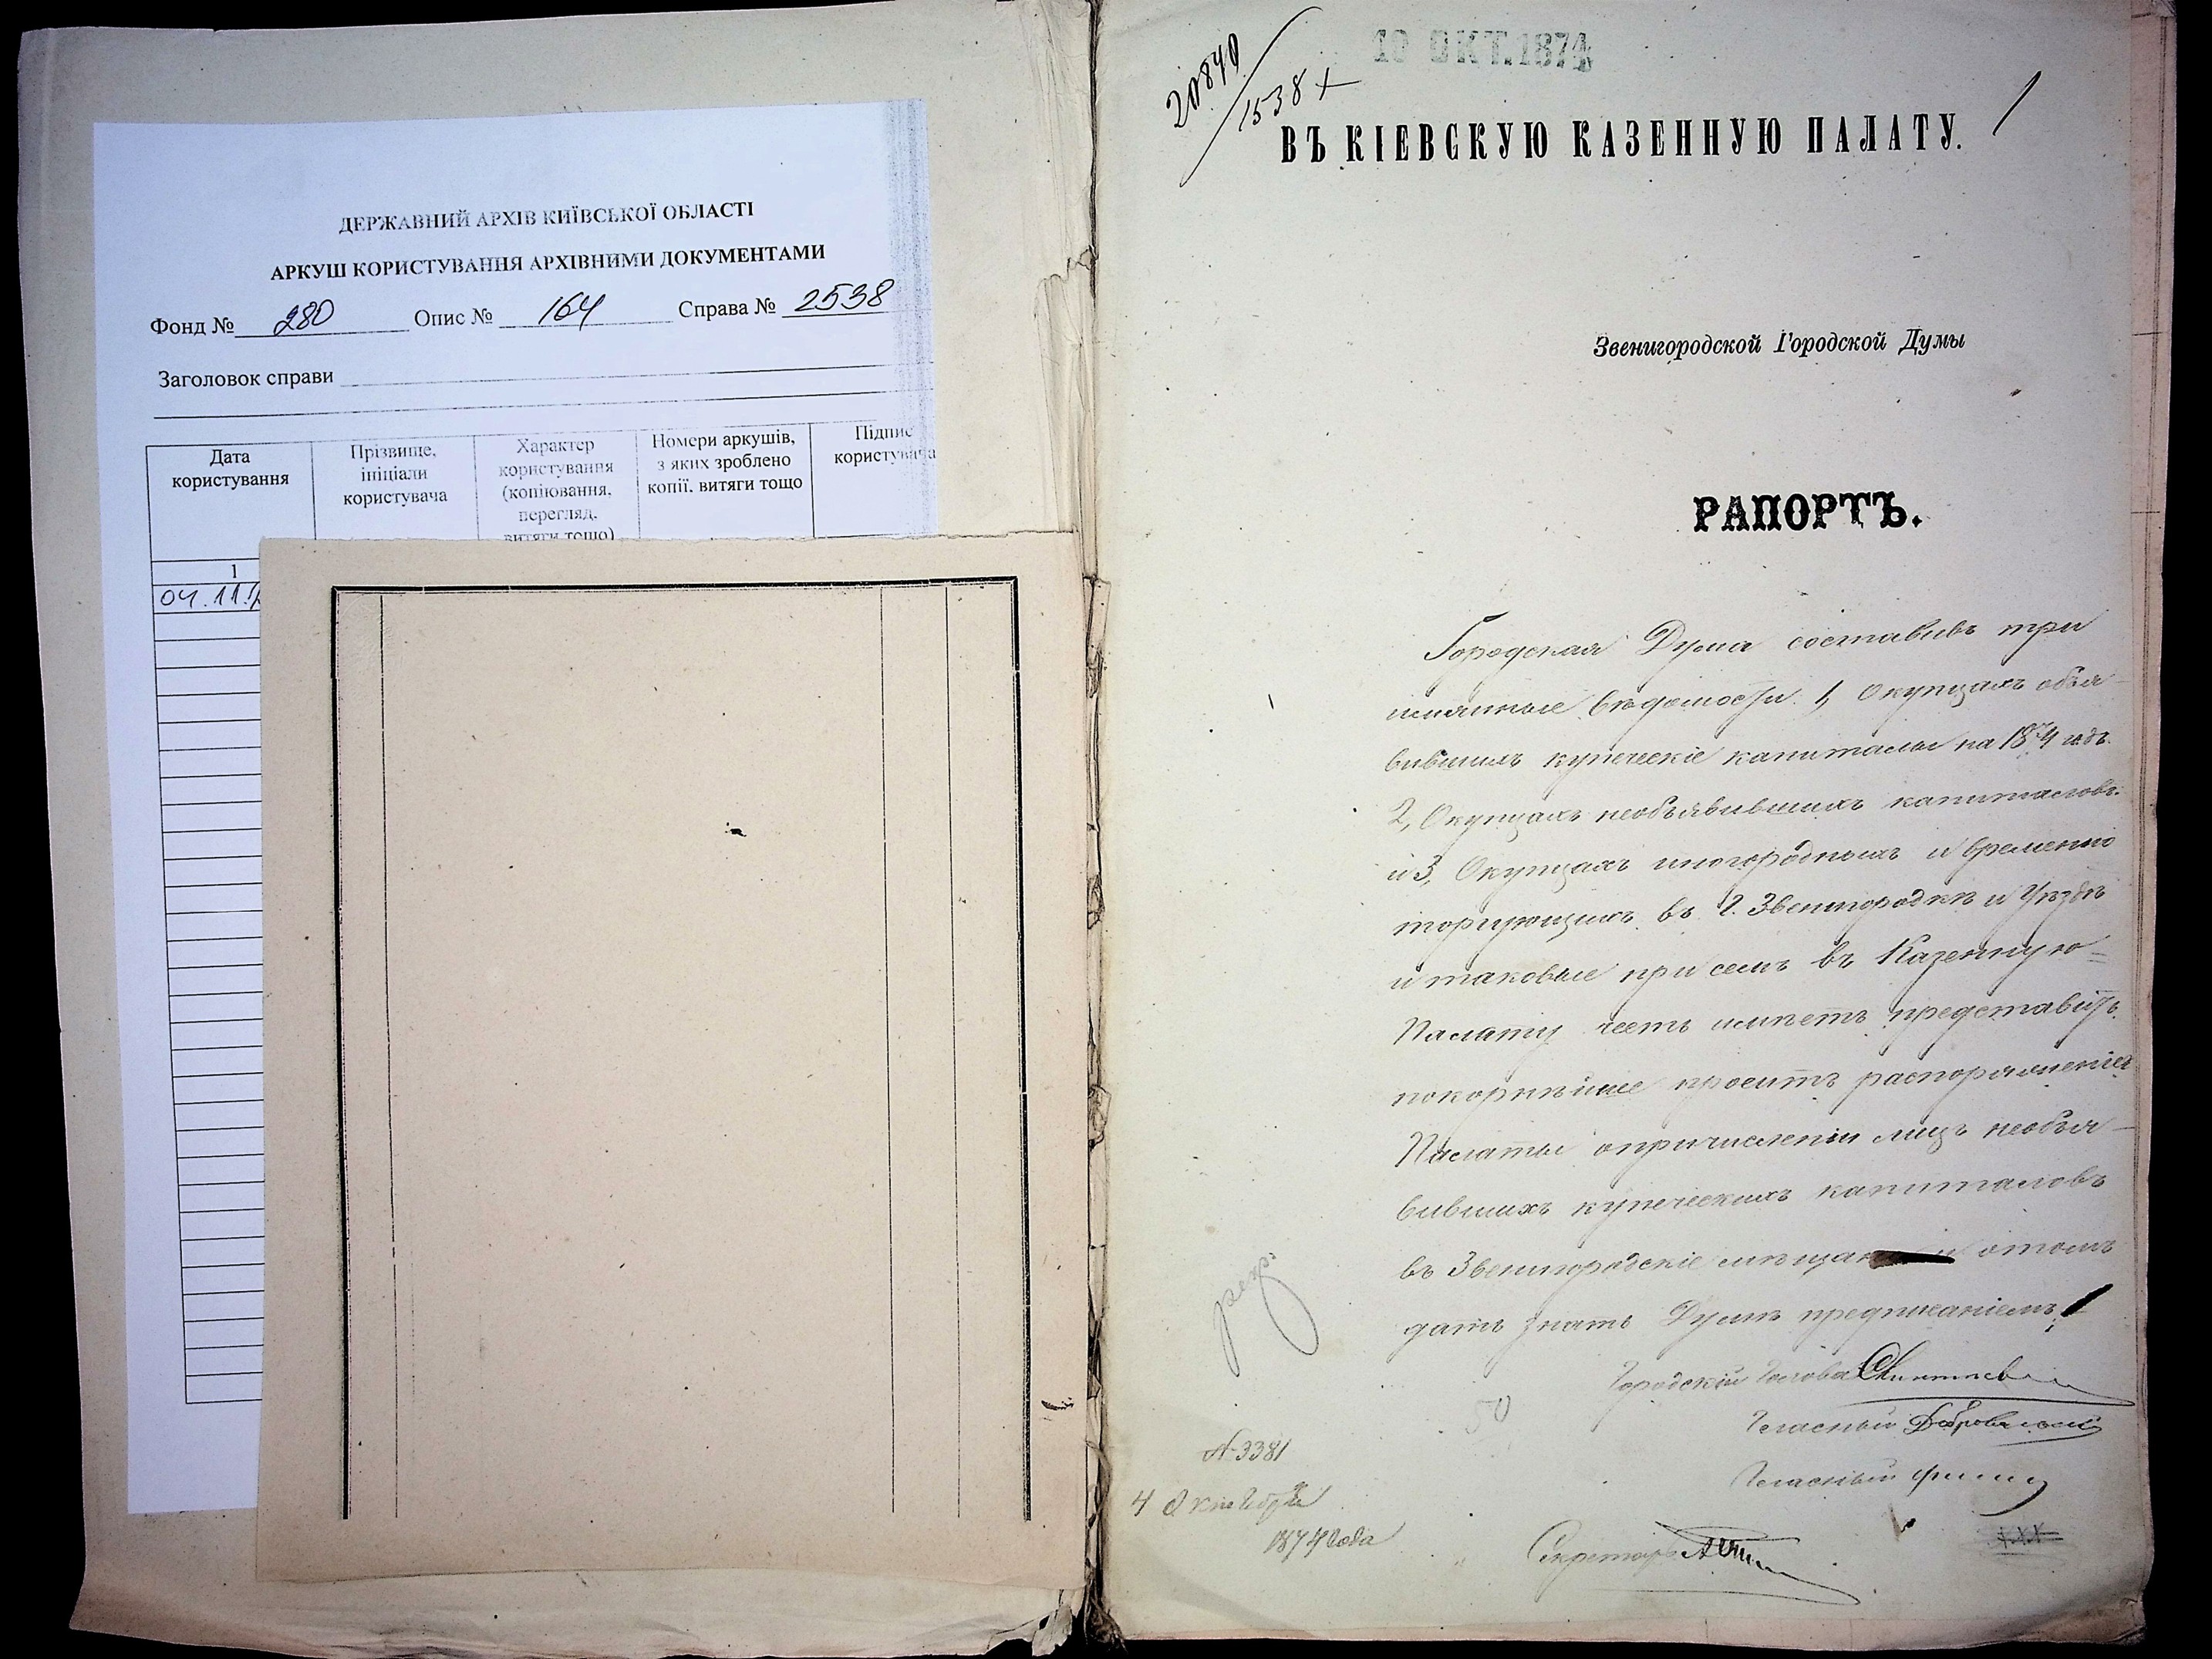 ДЕРЖАВНИЙ АРХІВ КИЇВСЬКОЇ ОБЛАСТІ
АРКУШ КОРИСТУВАННЯ АРХІВНИМИ ДОКУМЕНТАМИ
Фонд № 280 Опис № 164 Справа № 2538
Заголовок справи
Дата користування
Прізвище, ініціали користувача
Характер користування (копіювання, перегляд, витяги тощо)
Номери аркушів, з яких зроблено копії, витяги тощо
Підпис користувача
1
04.11.
20840
1538 +
10 ОКТ. 1874
1
ВЪ КІЕВСКУЮ КАЗЕННУЮ ПАЛАТУ.
Звенигородской Городской Думы
РАПОРТЪ.
Городская Дума составивъ три
именные вѣдомости. 1, О купцахъ объя-
вившихъ купеческіе капиталы на 1874 годъ.
2, О купцахъ необъявившихъ капиталовъ.
и 3, О купцахъ иногородныхъ и временно
торгующихъ въ Г. Звенигородкѣ и Уѣздѣ
и таковые при семъ въ Казенную
Палату честь имѣетъ представить.
покорнѣйше проситъ распоряженія
Палаты о причисленіи лицъ необъя-
вившихъ купеческихъ капиталовъ
въ Звенигородскіе мѣщан и о томъ
дать знать Думѣ предписаніемъ.
Городской Голова
Гласный
Гласный
Секретарь
№ 3381
4 Октября
1874 года
50